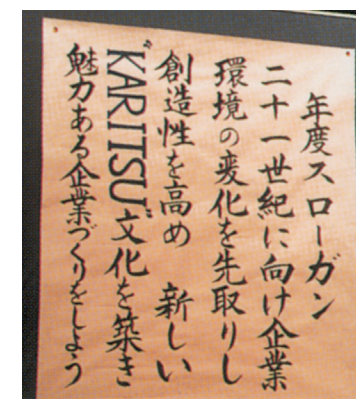 年度スローガン
二十一世紀に向け企業
環境の変化を先取りし
創造性を高め 新しい
"KARITSU"文化を築き
魅力ある企業づくりをしよう